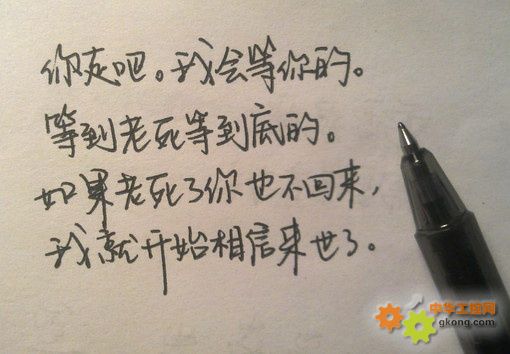 你灰吧。我会等你的。
等到老死等到底的。
如果老死了你也不回来，
我就开始相信来世了。
中华工控网
gkong.com